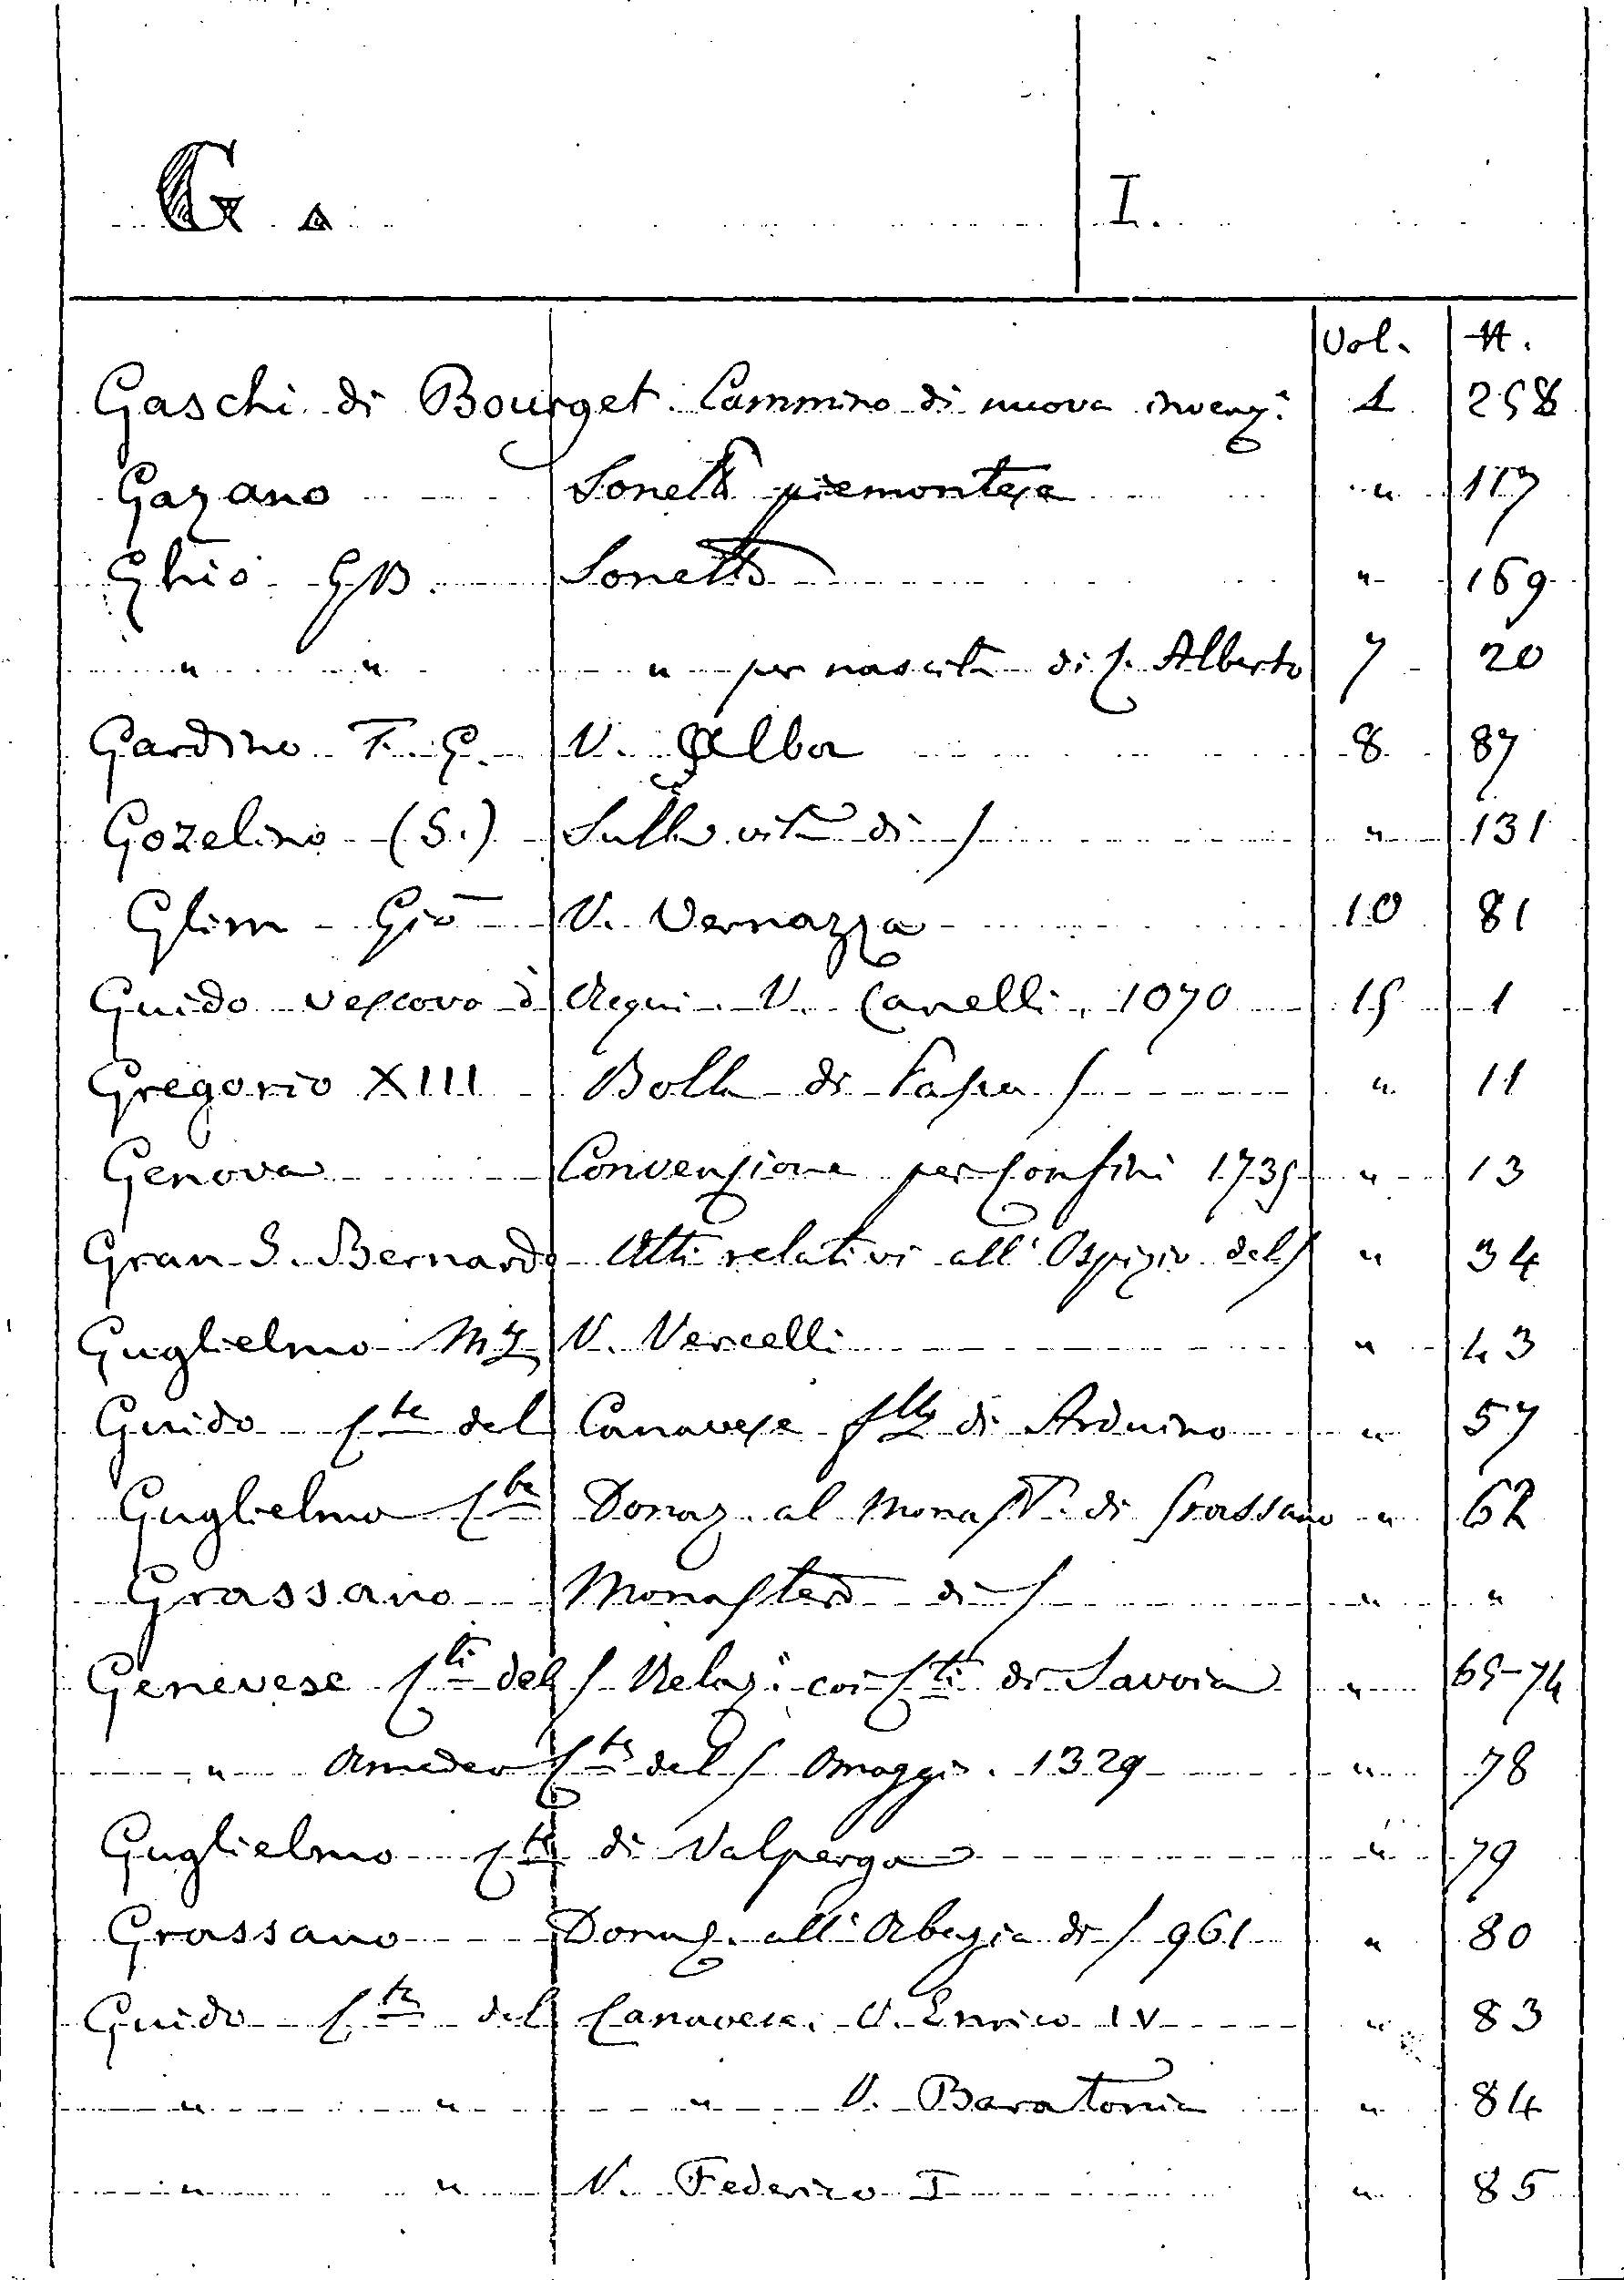 G. I.
Vol. N.
Gaschi di Bourget. Cammino di nuova invenz.e 1 258
Gazano Sonetti piemontese " 117
Ghio GB. Sonetto " 169
" " " per nascita di C. Alberto 7 20
Gardino F. G. V. Alba 8 87
Gozelino (S.) Sulla vita di / " 131
Glim Gio V. Vernazza 10 81
Guido vescovo d' Acqui. V. Canelli, 1070 15 1
Gregorio XIII Bolla di Papa / " 11
Genova Convenzione per Confini 1735 " 13
Gran S. Bernardo Atti relativi all' Ospizio del / " 34
Guglielmo M.se V. Vercelli " 43
Guido C.te del Canavese f.llo di Arduino " 57
Guglielmo C.te Donaz. al Monast. di Grassano " 62
Grassano Monastero di / " "
Genevese C.ti del / Relaz.i coi C.ti di Savoia " 65-74
" Amedeo C.te del / Omaggio. 1329 " 78
Guglielmo C.te di Valperga " 79
Grassano Donaz. all' Abazia di / 961 " 80
Guido C.te del Canavese. V. Enrico IV " 83
" " " V. Baratonia " 84
" " V. Federico I " 85